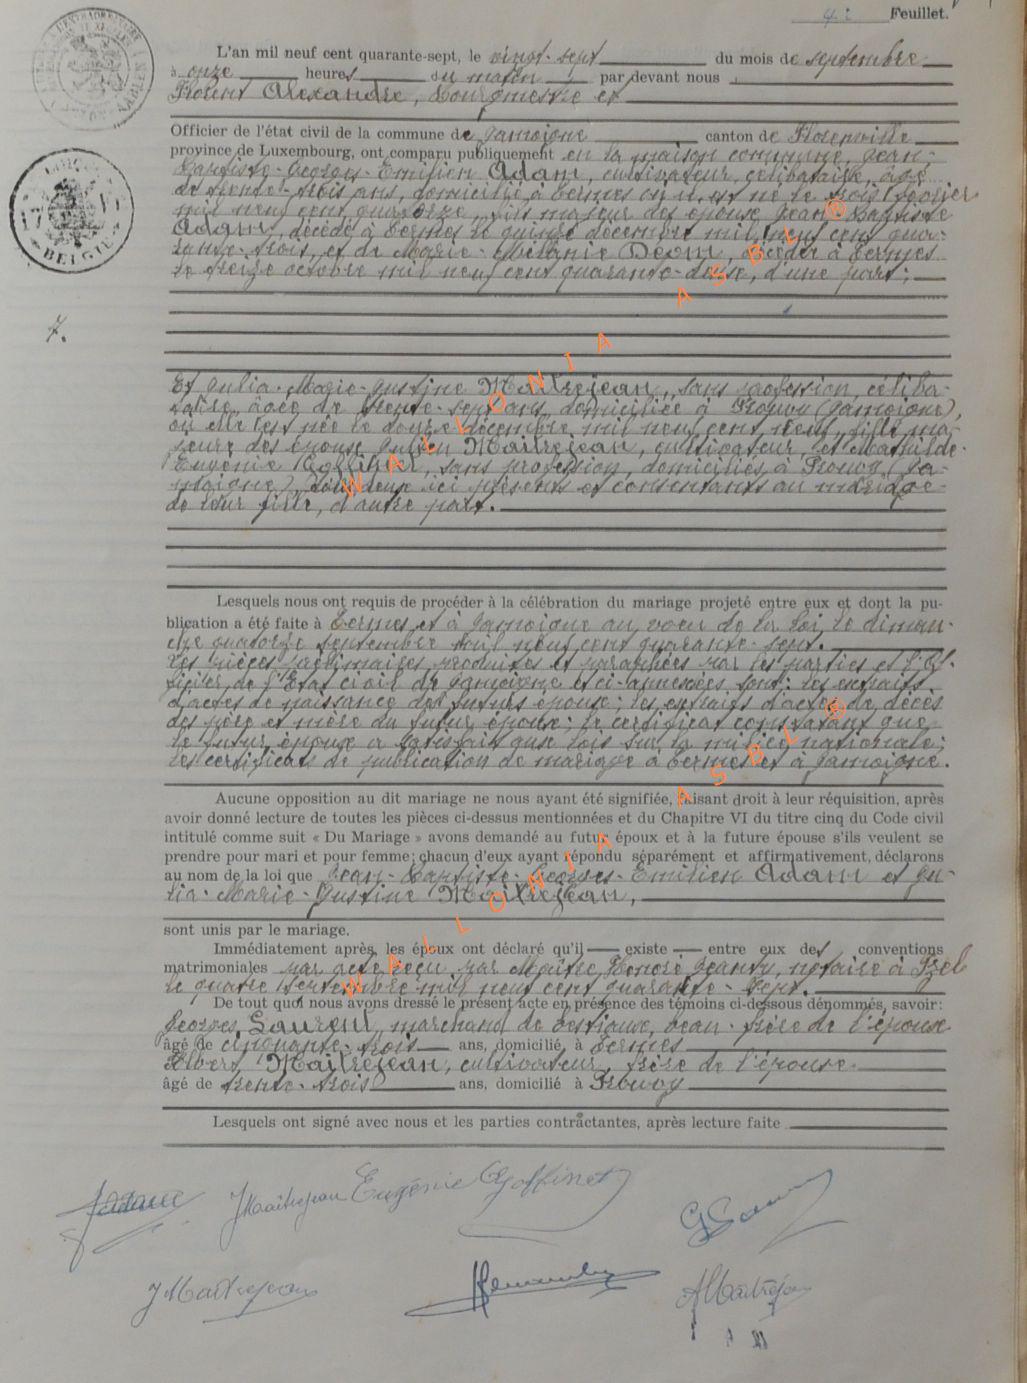 Feuillet.
L'an mil neuf cent quarante-sept, le vingt-sept du mois de septembre
à onze heures du matin par devant nous
Florent Alexandre, Bourgmestre et
Officier de l'état civil de la commune de Jamoigne canton de Florenville
province de Luxembourg, ont comparu publiquement en la maison commune, Jean-
Baptiste-Georges-Emilien Adam, cultivateur, célibataire, âgé
de trente-trois ans, domicilié à Termes où il est né le trois février
mil neuf cent quatorze, fils majeur des époux Jean-Baptiste
Adam, décédé à Termes le quinze décembre mil neuf cent qua-
rante-trois, et de Marie-Mélanie Déom, décédée à Termes
le treize octobre mil neuf cent quarante-deux, d'une part;
7.
Et Julia-Marie-Justine Maitrejean, sans profession, céliba-
taire, âgée de trente-sept ans, domiciliée à Prouvy (Jamoigne),
où elle est née le douze décembre mil neuf cent neuf, fille ma-
jeure des époux Julien Maitrejean, cultivateur, et Mathilde-
Eugénie Goffinet, sans profession, domiciliés à Prouvy (Ja-
moigne), tous deux ici présents et consentants au mariage
de leur fille, d'autre part.
Lesquels nous ont requis de procéder à la célébration du mariage projeté entre eux et dont la pu-
blication a été faite à Termes et à Jamoigne au vœu de la loi, le diman-
che quatorze septembre mil neuf cent quarante-sept.
Les pièces préliminaires produites et paraphées par les parties et l'Of-
ficier de l'Etat civil de Jamoigne et ci-annexées sont: les extraits
d'actes de naissance des futurs époux; les extraits d'actes de décès
des père et mère du futur époux; le certificat constatant que
le futur époux a satisfait aux lois sur la milice nationale;
les certificats de publication de mariage à Termes et à Jamoigne.
Aucune opposition au dit mariage ne nous ayant été signifiée, faisant droit à leur réquisition, après
avoir donné lecture de toutes les pièces ci-dessus mentionnées et du Chapitre VI du titre cinq du Code civil
intitulé comme suit « Du Mariage » avons demandé au futur époux et à la future épouse s'ils veulent se
prendre pour mari et pour femme; chacun d'eux ayant répondu séparément et affirmativement, déclarons
au nom de la loi que Jean-Baptiste-Georges-Emilien Adam et Ju-
lia-Marie-Justine Maitrejean,
sont unis par le mariage.
Immédiatement après, les époux ont déclaré qu'il existe entre eux des conventions
matrimoniales par acte reçu par Maître Honoré Jeanty, notaire à Izel
le quatre septembre mil neuf cent quarante-sept.
De tout quoi nous avons dressé le présent acte en présence des témoins ci-dessous dénommés, savoir:
Georges Laurent, marchand de bestiaux, beau-frère de l'époux
âgé de cinquante-trois ans, domicilié à Termes
Albert Maitrejean, cultivateur, frère de l'épouse
âgé de trente-trois ans, domicilié à Prouvy
Lesquels ont signé avec nous et les parties contractantes, après lecture faite
JMaitrejean Eugénie Goffinet
JMaitrejean AMaitrejean
WALLONIA ASBL ®
WALLONIA ASBL ®
BELGIË